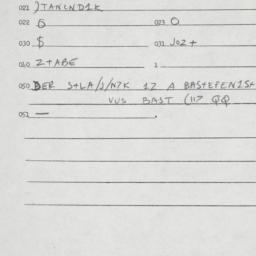 021 )TANCND1K
022 6 023 0
030 $ 031 JOZ+
040 2+ABE 1
050 DER S+LA/J/N7K 12 A BAS+EFEN1S+
VUS BAST (117 QQ
051 —